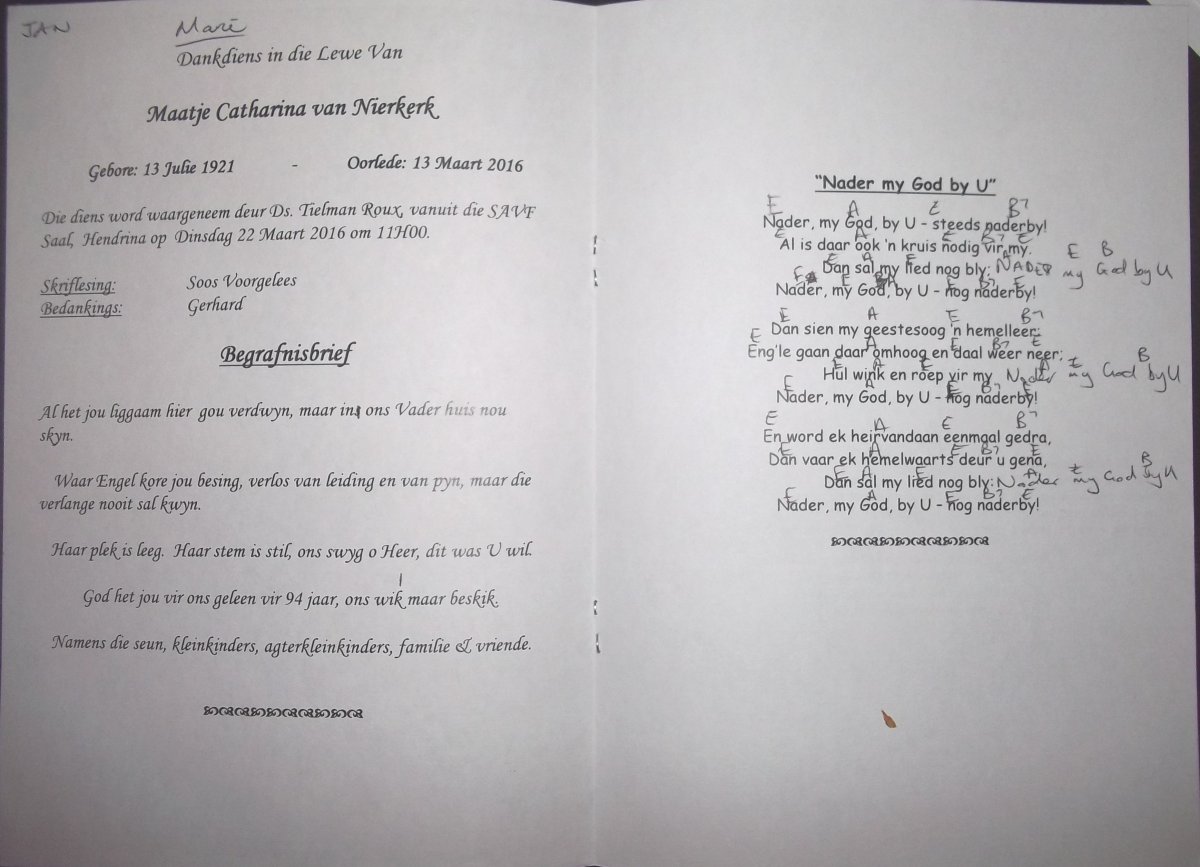 JAN
Maré
Dankdiens in die Lewe Van
Maatje Catharina van Nierkerk
Gebore: 13 Julie 1921 - Oorlede: 13 Maart 2016
Die diens word waargeneem deur Ds. Tielman Roux, vanuit die SAVF
Saal, Hendrina op Dinsdag 22 Maart 2016 om 11H00.
Skriflesing: Soos Voorgelees
Bedankings: Gerhard
Begrafnisbrief
Al het jou liggaam hier gou verdwyn, maar in ons Vader huis nou
skyn.
Waar Engel kore jou besing, verlos van leiding en van pyn, maar die
verlange nooit sal kwyn.
Haar plek is leeg. Haar stem is stil, ons swyg o Heer, dit was U wil.
God het jou vir ons geleen vir 94 jaar, ons wik maar beskik.
Namens die seun, kleinkinders, agterkleinkinders, familie & vriende.
"Nader my God by U"
E A E B7
Nader, my God, by U - steeds naderby!
E A E B7 E
Al is daar ook 'n kruis nodig vir my.
E A E A E B
Dan sal my lied nog bly: NADER my God by U
E A E B7 E
Nader, my God, by U - nog naderby!
E A E B7
Dan sien my geestesoog 'n hemelleer:
E A E B7 E
Eng'le gaan daar omhoog en daal weer neer;
E A E A E B
Hul wink en roep vir my Nader my God by U
E A E B7 E
Nader, my God, by U - nog naderby!
E A E B7
En word ek heirvandaan eenmaal gedra,
E A E B7 E
Dan vaar ek hemelwaarts deur u gena,
E A E A E B
Dan sal my lied nog bly: Nader my God by U
E A E B7 E
Nader, my God, by U - nog naderby!